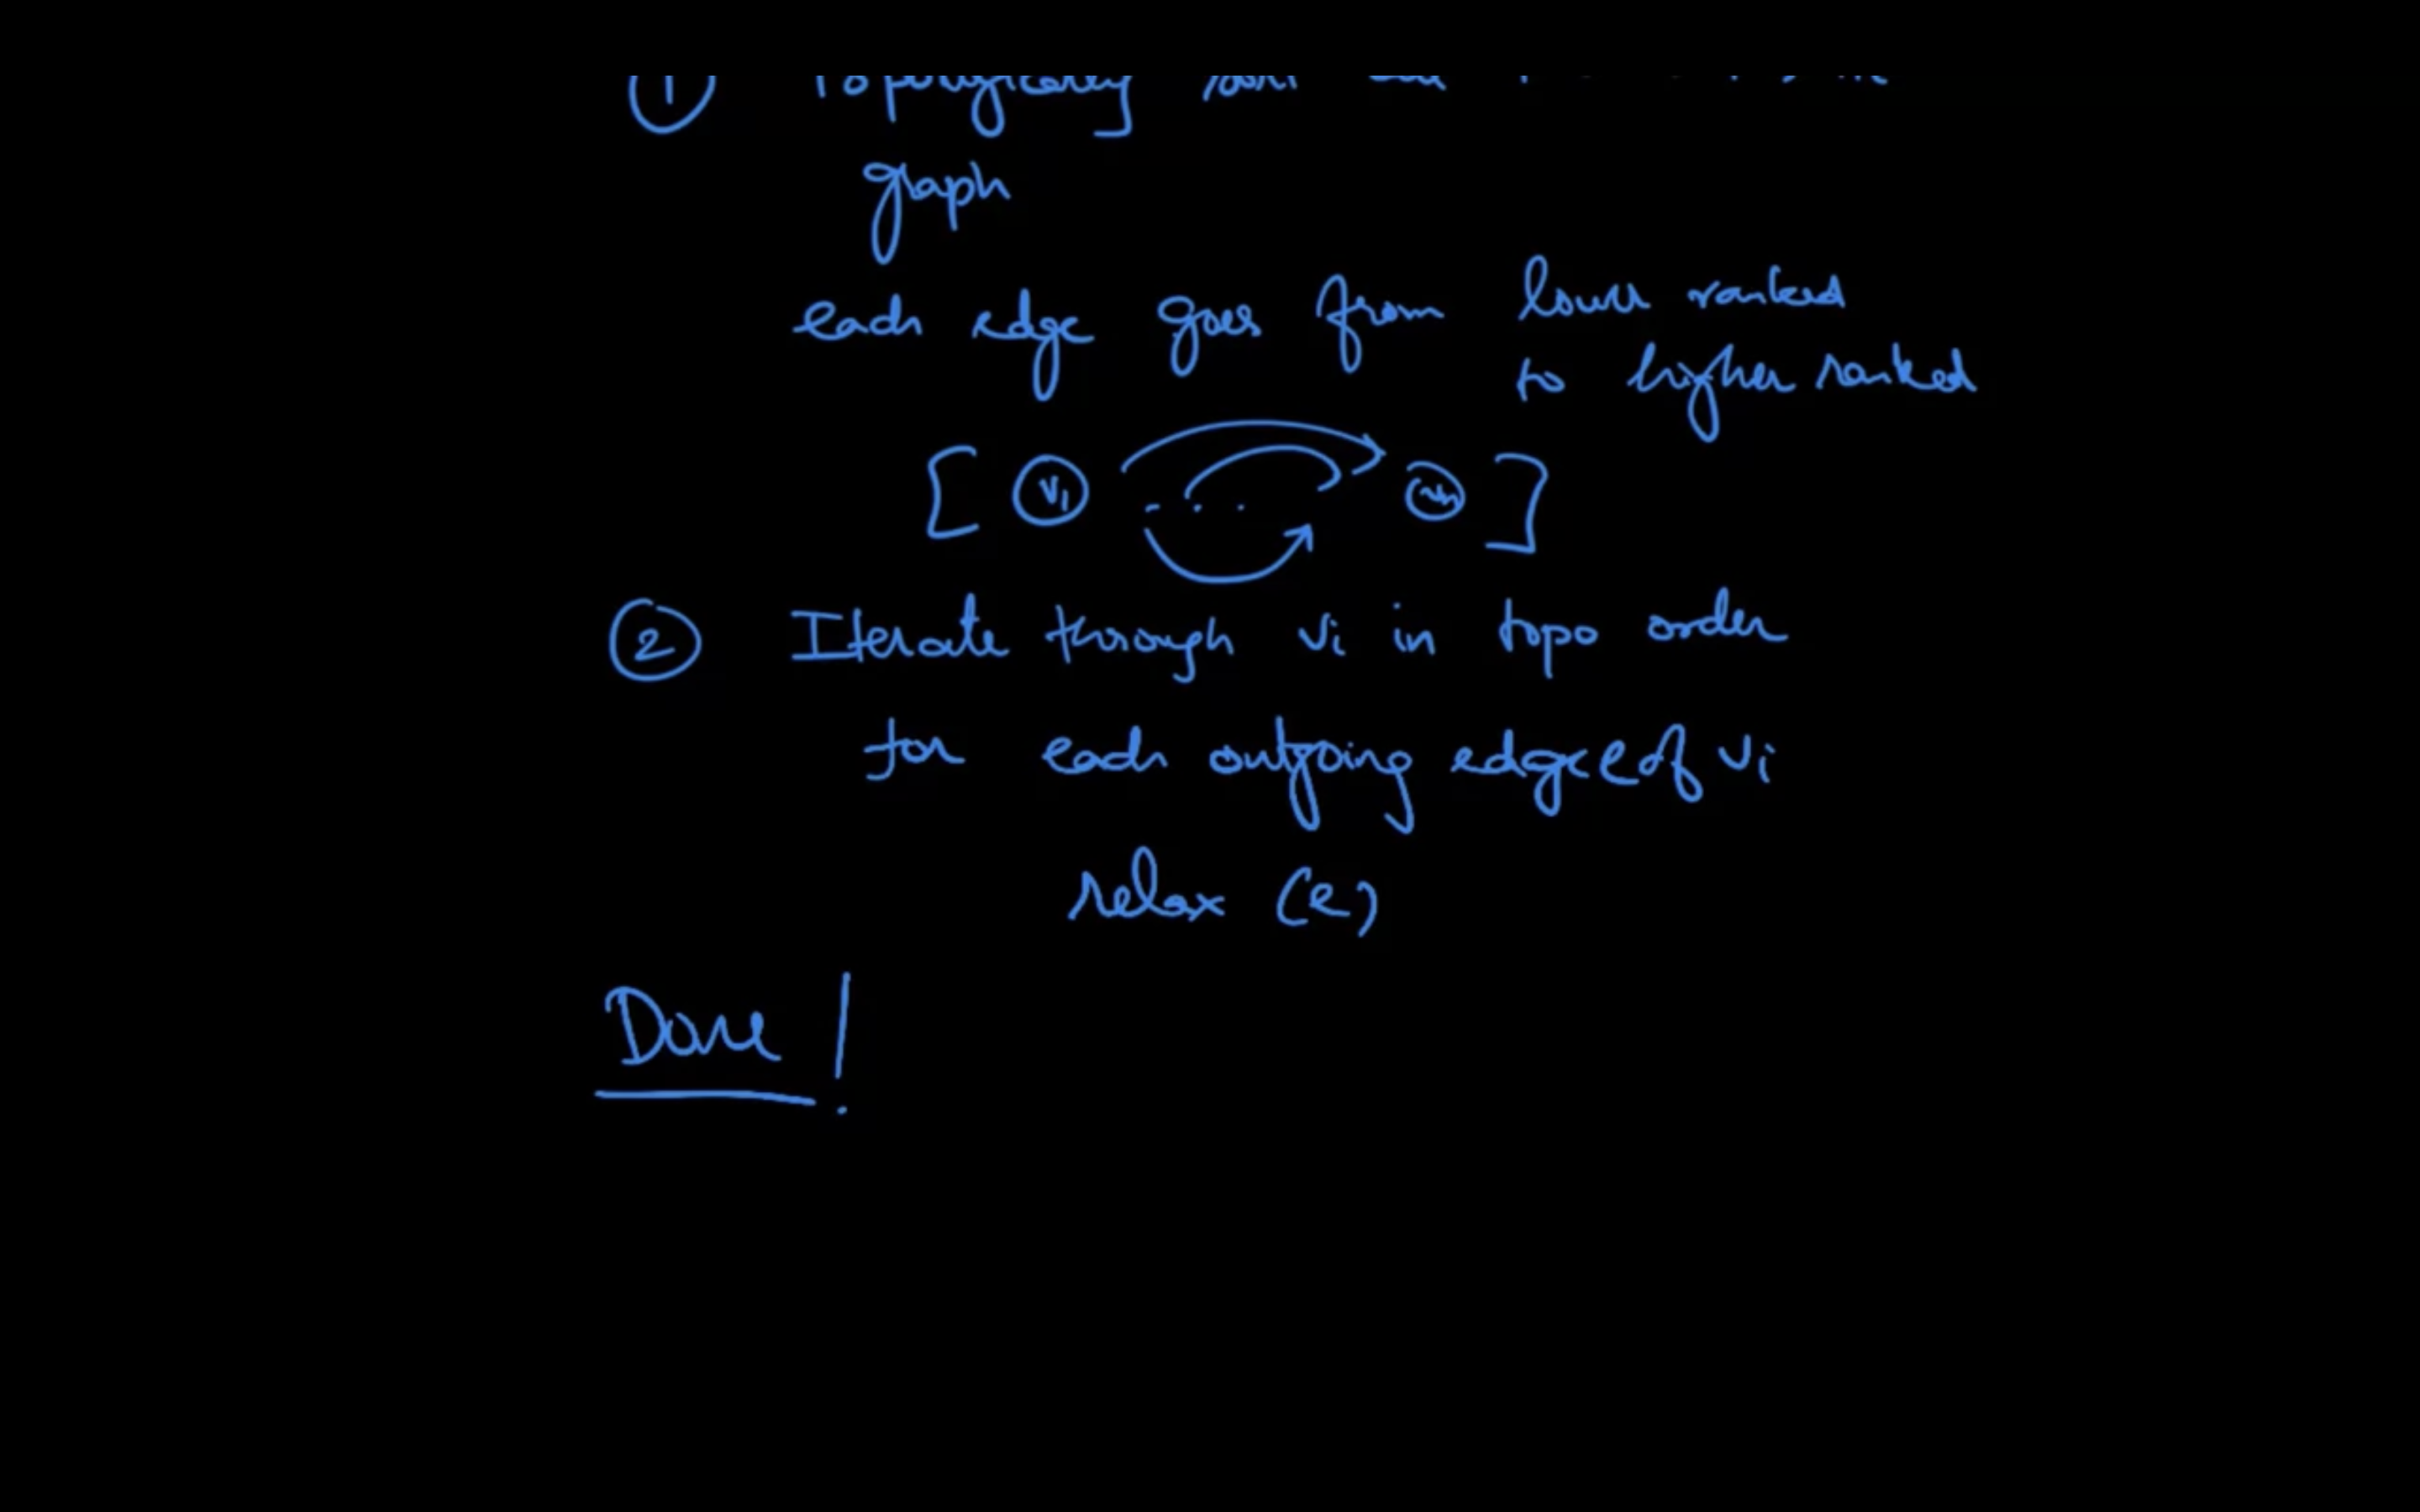 ① Topologically sort all
graph
each edge goes from lower ranked
to higher ranked
[ v1 ... vn ]
② Iterate through vi in topo order
for each outgoing edge e of vi
relax (e)
Done!